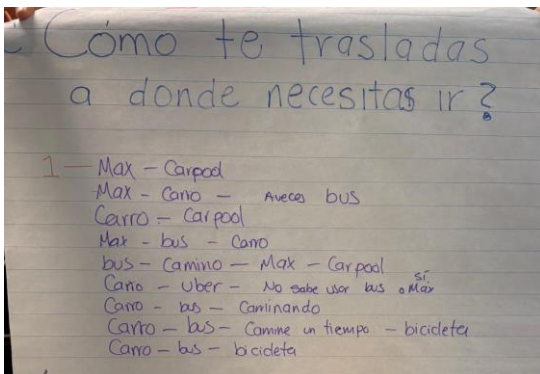 ¿Cómo te trasladas
a donde necesitas ir?
1 — Max – Carpool
Max – Carro – Aveces bus
Carro – Carpool
Max – bus – Carro
bus – Camino – Max – Carpool
Carro – Uber – No sabe usar bus o Max sí
Carro – bus – Caminando
Carro – bus – Camine un tiempo – bicicleta
Carro – bus – bicicleta